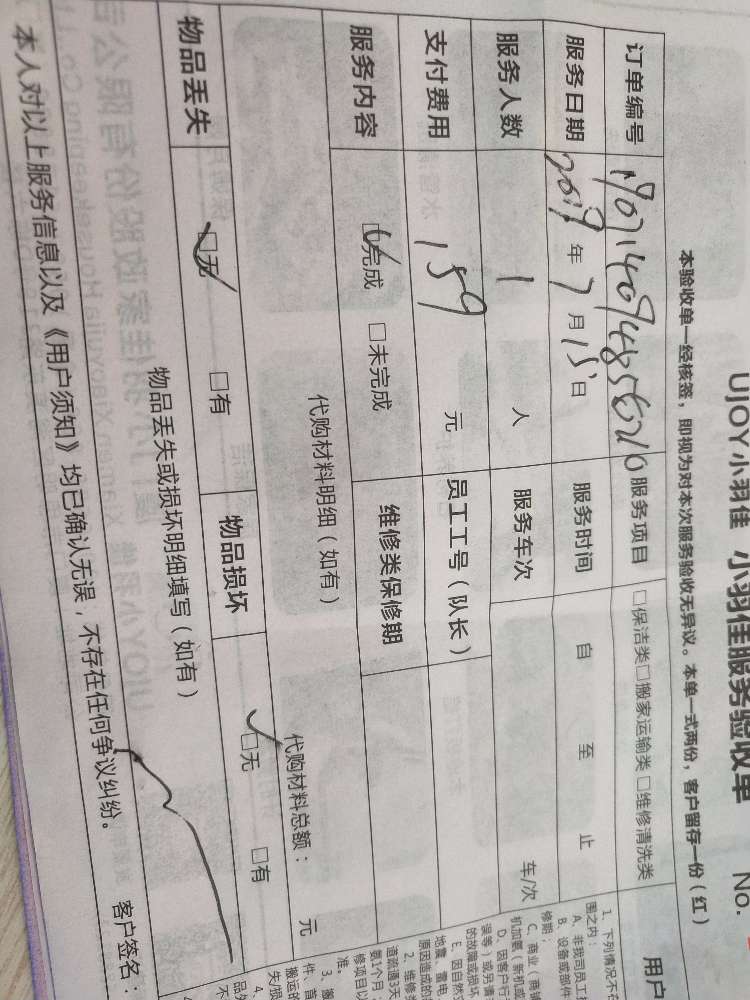 UJOY小羽佳 小羽佳服务验收单 No.
本验收单一经核签，即视为对本次服务验收无异议。本单一式两份，客户留存一份（红）
订单编号 服务项目 □保洁类□搬家运输类□维修清洗类
服务日期 2019年7月15日 服务时间 自 至 止
服务人数 1 人 服务车次 车/次
支付费用 159 元 员工工号（队长）
服务内容 □完成 □未完成 维修类保修期
代购材料明细（如有） 代购材料总额： 元
物品丢失 □无 □有 物品损坏 □无 □有
物品丢失或损坏明细填写（如有）
本人对以上服务信息以及《用户须知》均已确认无误，不存在任何争议纠纷。 客户签名：
用户
1、下列情况不在
围之内：
A、非我司员工
B、设备或部件
修期
C、商业（商
机加氨（新机或
D、因客户行
误等）或另请
的故障或损坏
E、因自然
地震、雷电
原因造成的
2、维修类
道疏通3天
氨1个月
修项目以
准。
3、搬
件、首
搬运的
失/损
4、
品外